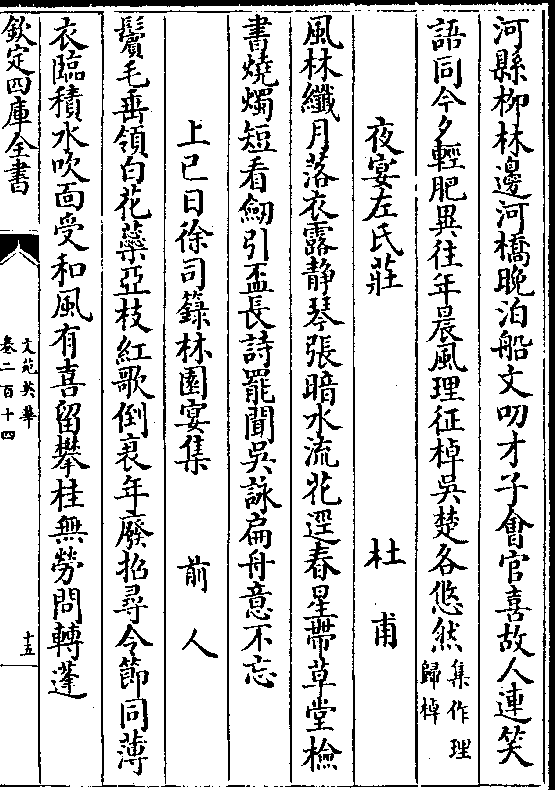 河縣柳林邊河橋晚泊船文叨才子會官喜故人連笑
語同今夕輕肥異往年晨風理征棹吳楚各悠然集作理歸棹
夜宴左氏莊 杜甫
風林纖月落衣露靜琴張暗水流花逕春星帶草堂檢
書燒燭短看劒引盃長詩罷聞吳詠扁舟意不忘
上巳日徐司錄林園宴集 前人
鬢毛垂領白花蘂亞枝紅歌倒衰年廢招尋令節同薄
衣臨積水吹面受和風有喜留攀桂無勞問轉蓬
欽定四庫全書
文苑英華
卷二百十四
十五